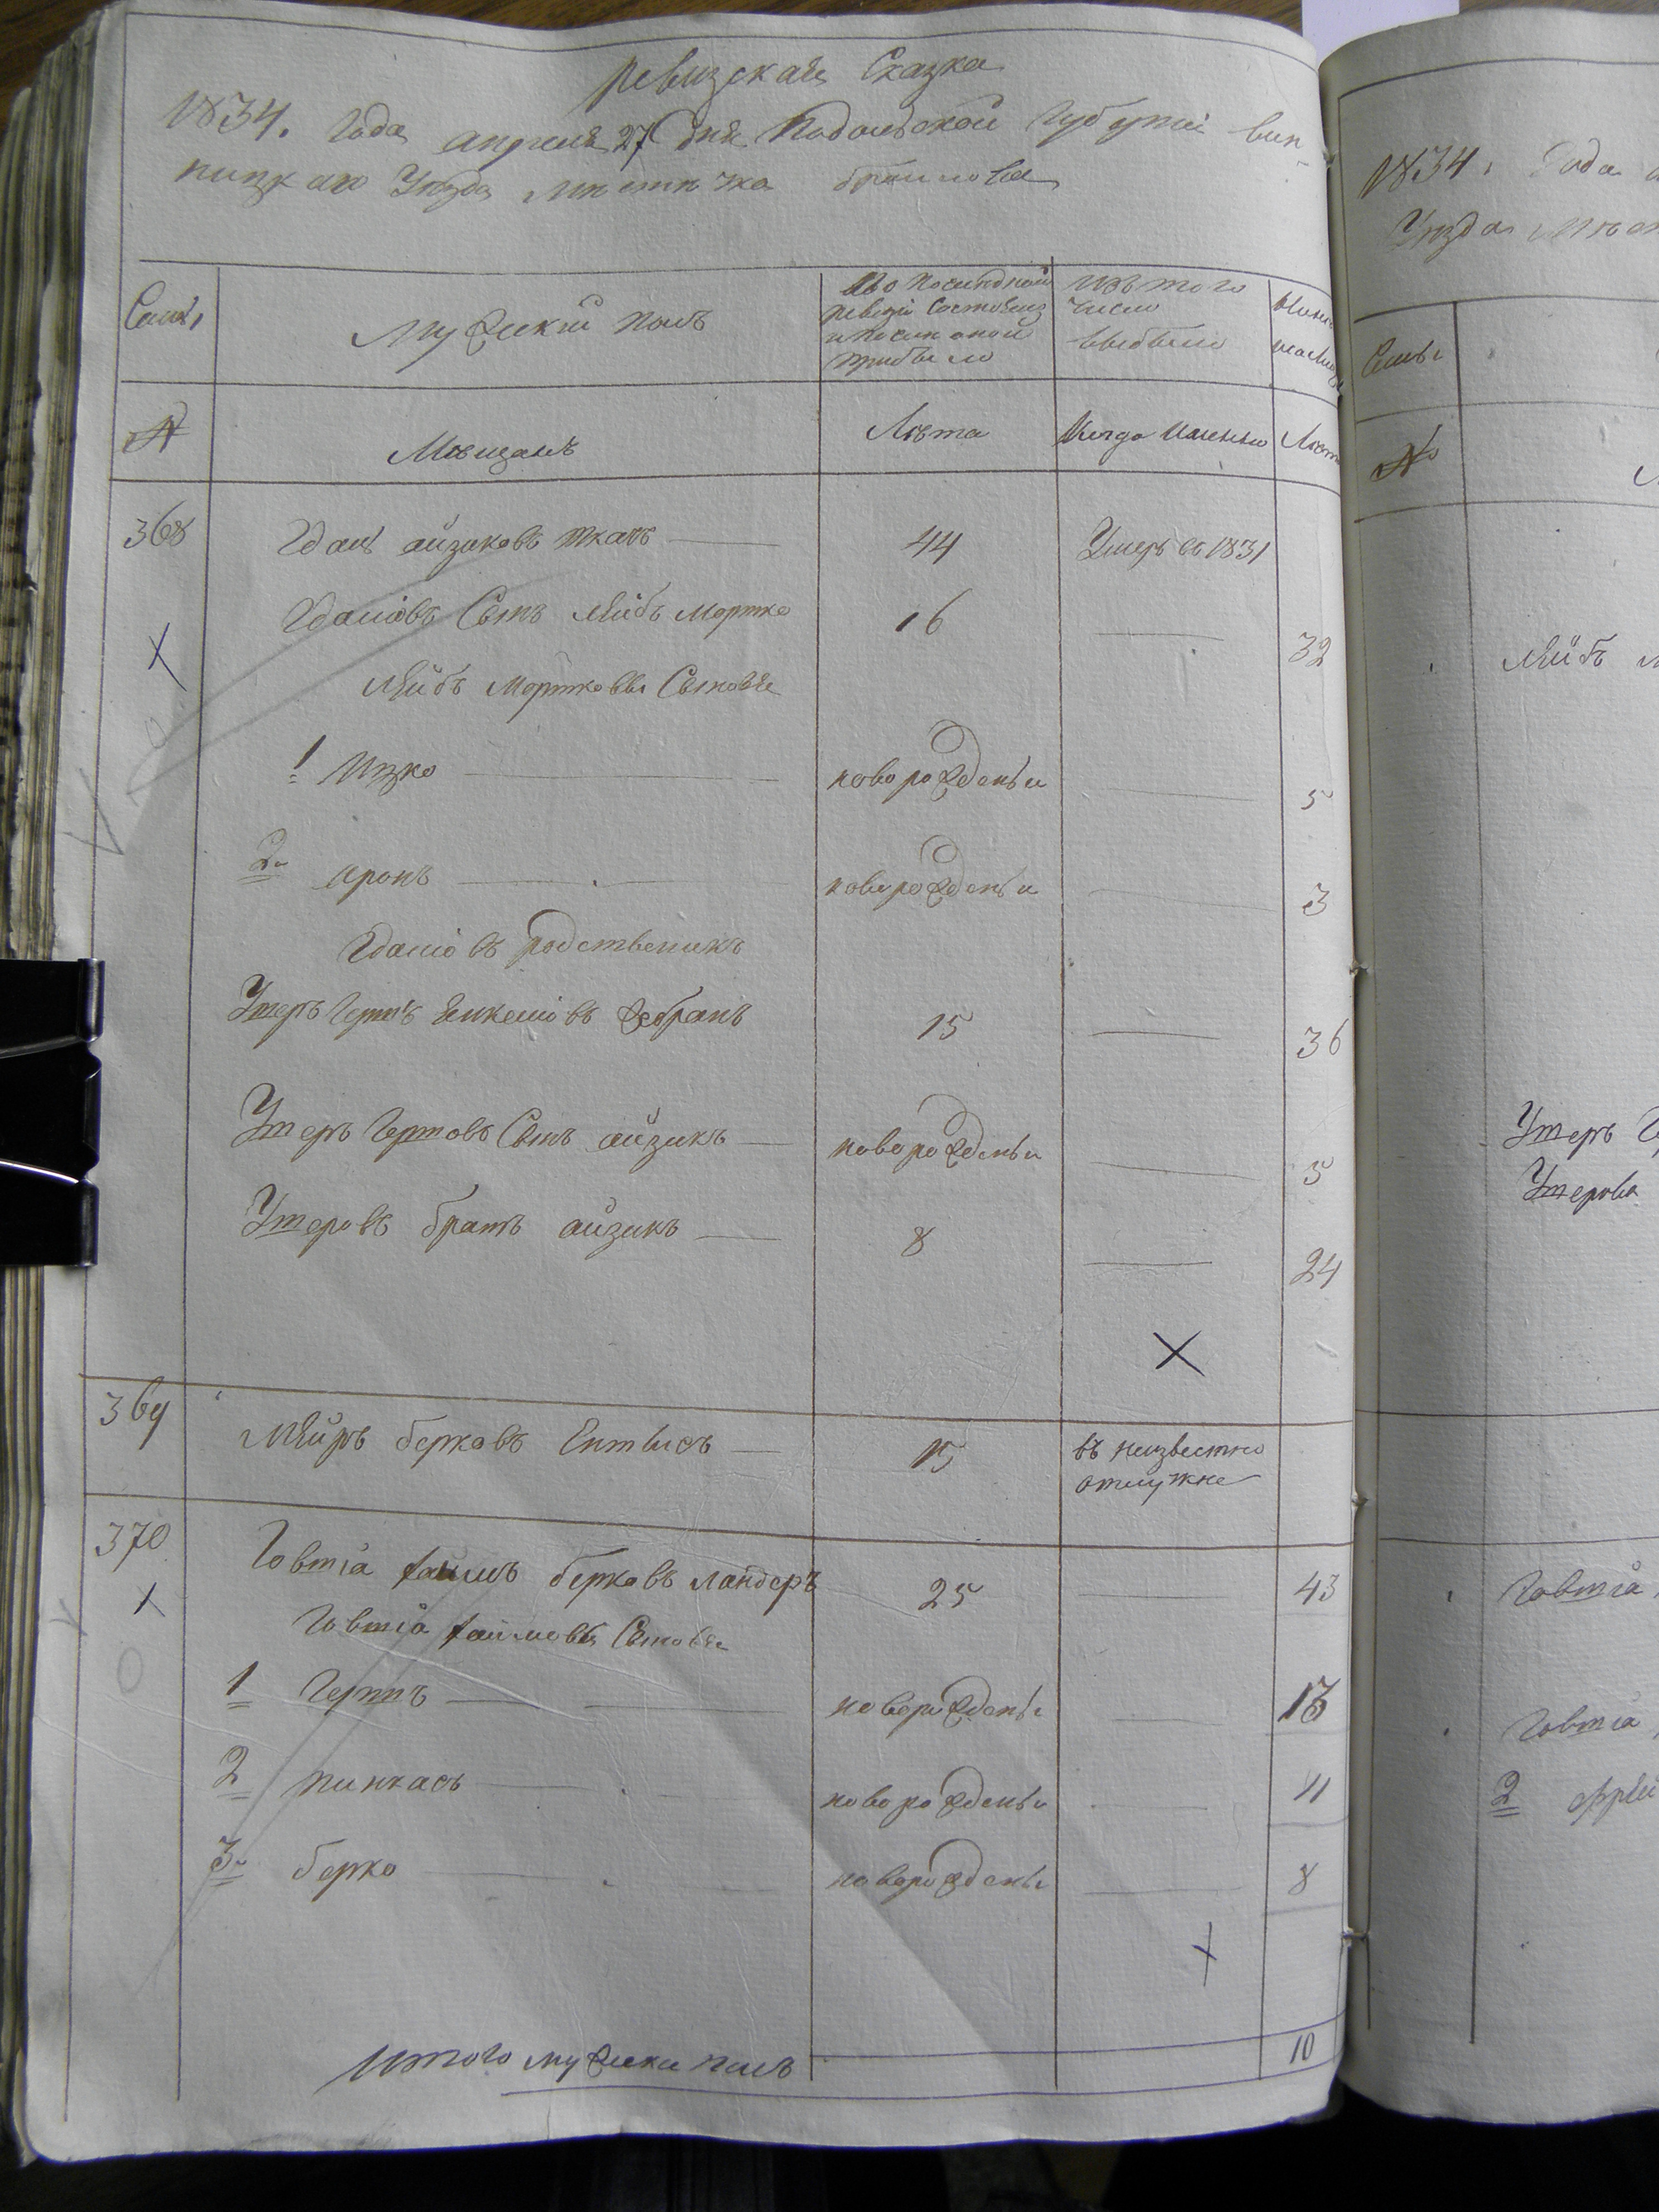 Ревизская Сказка
1834. Года апреля 27 дня Подольской Губернии Вин-
ницкаго Уезда местечка браилова
Семьи
Мужеский полъ
По последной ревизии состояло и после оной прибыло
Изъ того числа выбыло
Ныне на лицо
№
Мещанъ
Лета
Когда именно
Лета
368
аизиковъ ткачъ
44
Умеръ въ 1831
Сынъ Лейбъ Мортко
16
32
Лейбъ Мортковы Сыновья
1 Ицко
новорожденый
5
2 аронъ
новорожденый
3
родственикъ
Ушеръ Гершъ
15
36
Ушеръ Гершовъ Сынъ айзикъ
новорожденый
5
Ушеровъ братъ айзикъ
8
24
369
Мейръ берковъ
15
въ неизвестно
отлучке
370
Говшіа хаимъ берковъ ландеръ
25
43
Говшіа хаимовы Сыновья
1 Гершъ
новорожденый
13
2 пинкасъ
новорожденый
11
3 берко
новорожденый
8
Итого мужеска полъ
10
1834. Года
Уезда
Семьи
№
Лейбъ
Ушеръ
Ушерова
Говшіа
Говшіа
2